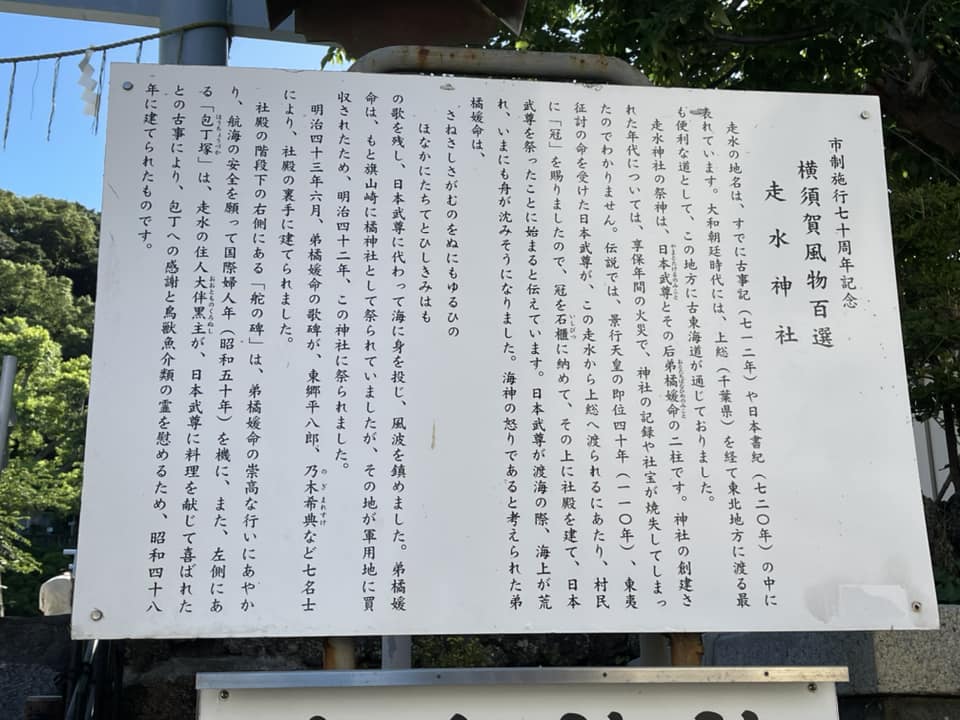 市制施行七十周年記念
横須賀風物百選
走水神社
走水の地名は、すでに古事記（七一二年）や日本書紀（七二〇年）の中に
表れています。大和朝廷時代には、上総（千葉県）を経て東北地方に渡る最
も便利な道として、この地方に古東海道が通じておりました。
走水神社の祭神は、日本武尊とその后弟橘媛命の二柱です。神社の創建さ
れた年代については、享保年間の火災で、神社の記録や社宝が焼失してしまっ
たのでわかりません。伝説では、景行天皇の即位四十年（一一〇年）、東夷
征討の命を受けた日本武尊が、この走水から上総へ渡られるにあたり、村民
に「冠」を賜りましたので、冠を石櫃に納めて、その上に社殿を建て、日本
武尊を祭ったことに始まると伝えています。日本武尊が渡海の際、海上が荒
れ、いまにも舟が沈みそうになりました。海神の怒りであると考えられた弟
橘媛命は、
さねさしさがむのをぬにもゆるひの
ほなかにたちてとひしきみはも
の歌を残し、日本武尊に代わって海に身を投じ、風波を鎮めました。弟橘媛
命は、もと旗山崎に橘神社として祭られていましたが、その地が軍用地に買
収されたため、明治四十二年、この神社に祭られました。
明治四十三年六月、弟橘媛命の歌碑が、東郷平八郎、乃木希典など七名士
により、社殿の裏手に建てられました。
社殿の階段下の右側にある「舵の碑」は、弟橘媛命の崇高な行いにあやか
り、航海の安全を願って国際婦人年（昭和五十年）を機に、また、左側にあ
る「包丁塚」は、走水の住人大伴黒主が、日本武尊に料理を献じて喜ばれた
との古事により、包丁への感謝と鳥獣魚介類の霊を慰めるため、昭和四十八
年に建てられたものです。